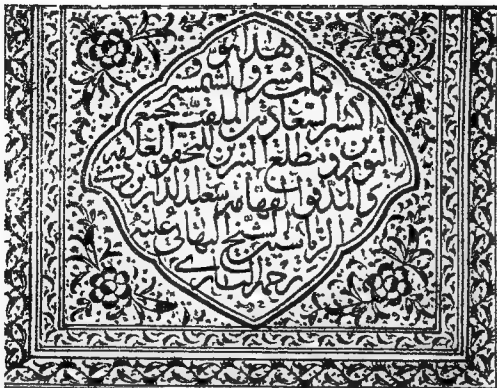 هذا هو
كتاب مشرق الشمسين
و اكسير السعادتين الملقب بمجمع
النورين و مطلع النيرين للمحقق العلامة
والمدقق الفهامة
الشيخ البهائي عليه
رحمة الباري